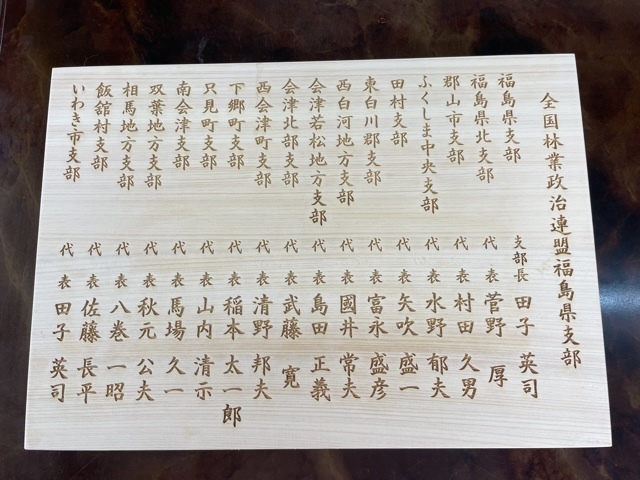 全国林業政治連盟福島県支部
福島県支部 支部長 田子 英司
福島県北支部 代表 菅野 厚
郡山市支部 代表 村田 久男
ふくしま中央支部 代表 水野 郁夫
田村支部 代表 矢吹 盛一
東白川郡支部 代表 富永 盛彦
西白河地方支部 代表 國井 常夫
会津若松地方支部 代表 島田 正義
会津北部支部 代表 武藤 寛
西会津町支部 代表 清野 邦夫
下郷町支部 代表 稲本 太一郎
只見町支部 代表 山内 清示
南会津支部 代表 馬場 久一
双葉地方支部 代表 秋元 公夫
相馬地方支部 代表 八巻 一昭
飯舘村支部 代表 佐藤 長平
いわき市支部 代表 田子 英司